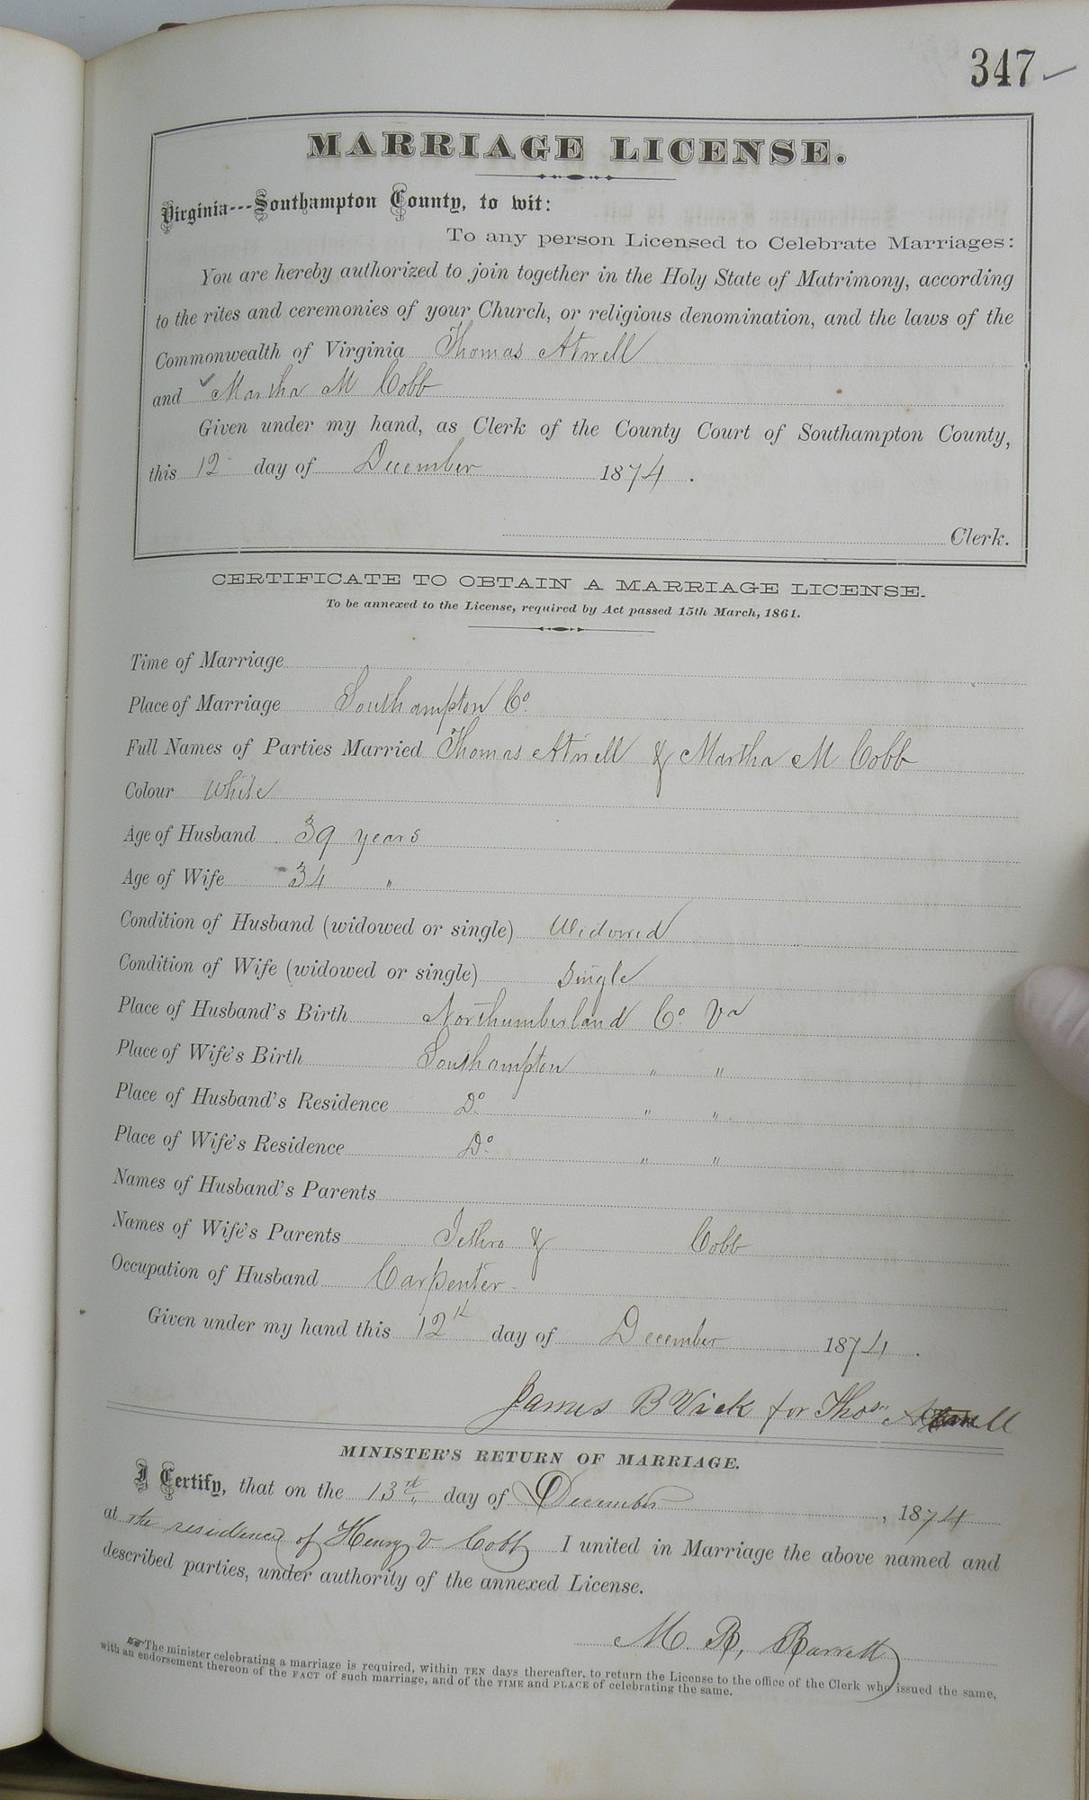 347
MARRIAGE LICENSE.
Virginia---Southampton County, to wit:
To any person Licensed to Celebrate Marriages:
You are hereby authorized to join together in the Holy State of Matrimony, according
to the rites and ceremonies of your Church, or religious denomination, and the laws of the
Commonwealth of Virginia Thomas Atwell
and Martha M Cobb
Given under my hand, as Clerk of the County Court of Southampton County,
this 12 day of December 1874.
Clerk.
CERTIFICATE TO OBTAIN A MARRIAGE LICENSE.
To be annexed to the License, required by Act passed 15th March, 1861.
Time of Marriage
Place of Marriage Southampton Co.
Full Names of Parties Married Thomas Atwell & Martha M Cobb
Colour White
Age of Husband 39 years
Age of Wife 34 "
Condition of Husband (widowed or single) Widowed
Condition of Wife (widowed or single) Single
Place of Husband's Birth Northumberland Co. Va
Place of Wife's Birth Southampton " "
Place of Husband's Residence Do. " "
Place of Wife's Residence Do. " "
Names of Husband's Parents
Names of Wife's Parents Jethro & Cobb
Occupation of Husband Carpenter
Given under my hand this 12th day of December 1874.
James B Vick for Thos. Atwell
MINISTER'S RETURN OF MARRIAGE.
I Certify, that on the 13th day of December, 1874
at the residence of Henry V Cobb I united in Marriage the above named and
described parties, under authority of the annexed License.
M. R, Barrett
The minister celebrating a marriage is required, within TEN days thereafter, to return the License to the office of the Clerk who issued the same,
with an endorsement thereon of the FACT of such marriage, and of the TIME and PLACE of celebrating the same.